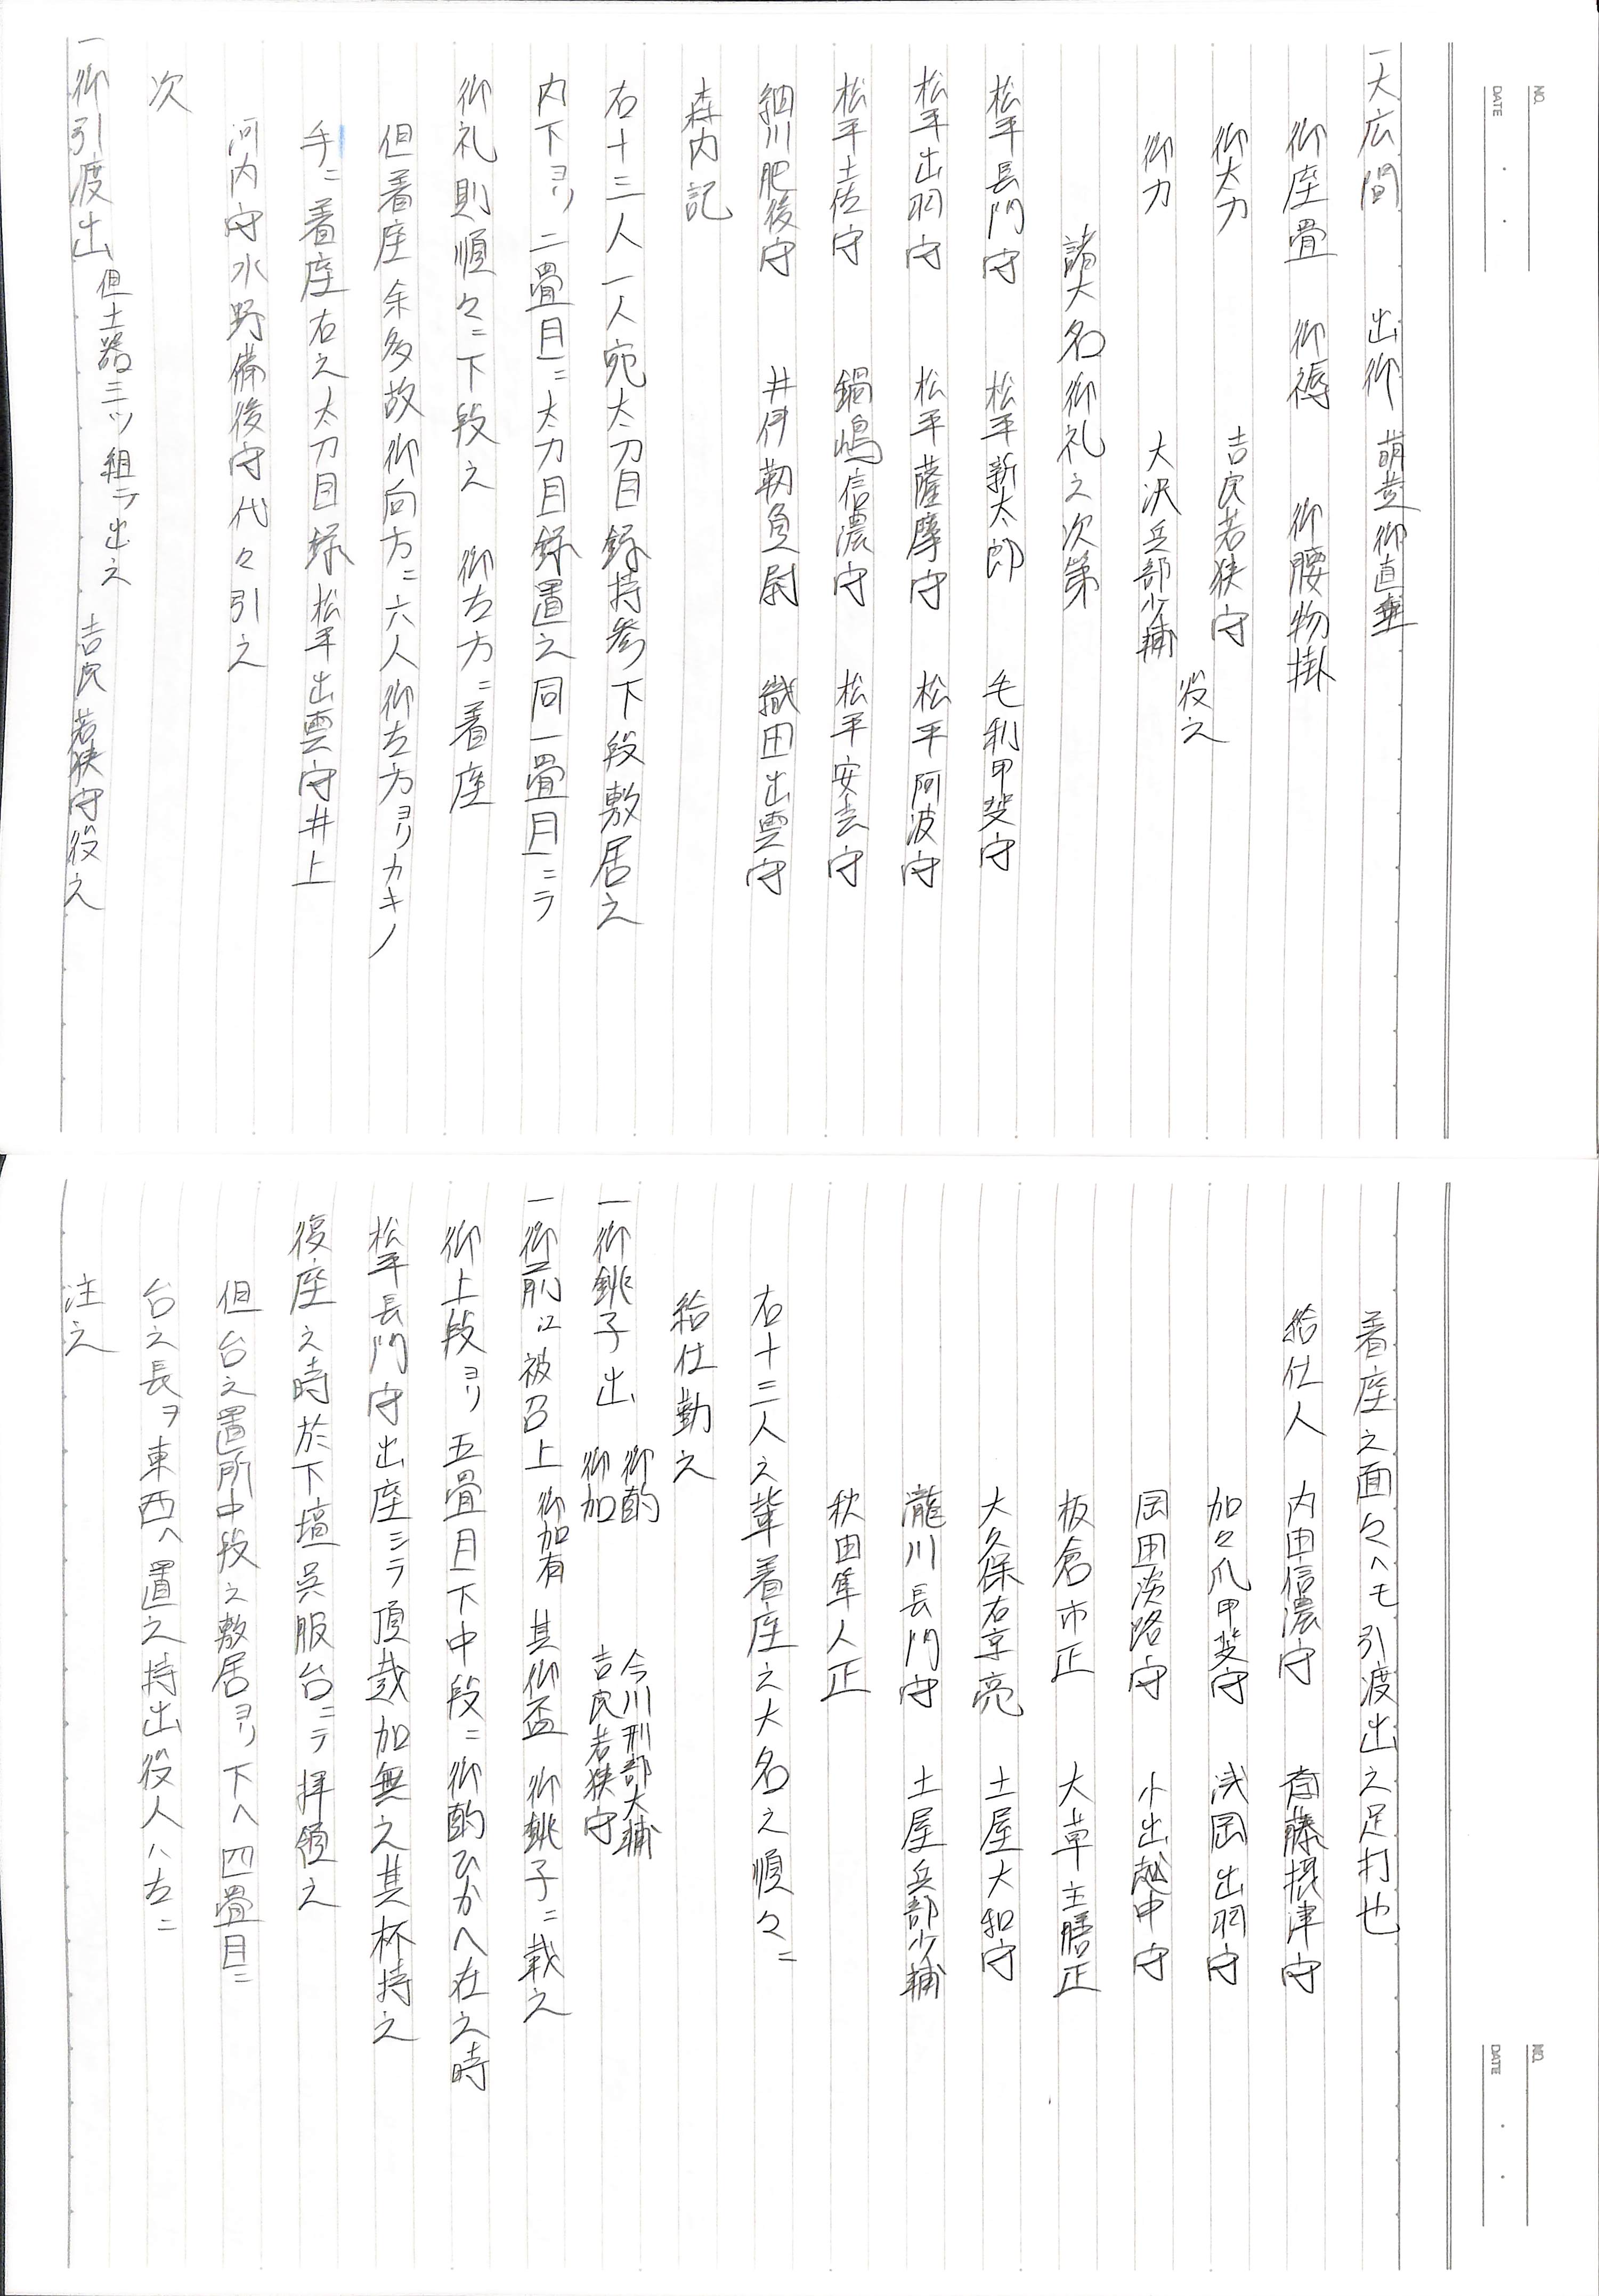 NO.
DATE
一大広間 出御 萌黄御直垂
御座畳 御褥 御腰物掛
御太刀 吉良若狭守
御刀 大沢兵部少輔
役之
諸大名御礼之次第
松平長門守 松平新太郎 毛利甲斐守
松平出羽守 松平薩摩守 松平阿波守
松平土佐守 鍋嶋信濃守 松平安芸守
細川肥後守 井伊靱負尉 織田出雲守
森内記
右十三人一人宛太刀目録持参下段敷居之
内下ヨリ二畳目ニ太刀目録置之同一畳目ニテ
御礼則順々ニ下段之 御左方ニ着座
但着座余多故御向方ニ六人御左方ヨリカキノ
手ニ着座右之太刀目録松平出雲守井上
河内守水野備後守代々引之
次
一御引渡出 但土器三ツ組テ出之 吉良若狭守役之
NO.
DATE
着座之面々ヘモ引渡出之足打也
給仕人 内田信濃守 斎藤摂津守
加々爪甲斐守 浅岡出羽守
岡田淡路守 小出越中守
板倉市正 大草主膳正
大久保右京亮 土屋大和守
瀧川長門守 土屋兵部少輔
秋田隼人正
右十三人之輩着座之大名之順々ニ
給仕勤之
一御銚子出 御酌 今川刑部大輔
御加 吉良若狭守
一御前江被召上 御加有 其御盃 御銚子ニ載之
御上段ヨリ五畳目下中段ニ御酌ひかへ在之時
松平長門守出座シテ頂戴加無之其杯持之
復座之時於下壇呉服台ニテ拝領之
但台之置所中段之敷居ヨリ下ヘ四畳目ニ
台之長ヲ東西ヘ置之持出役人ハ左ニ
注之